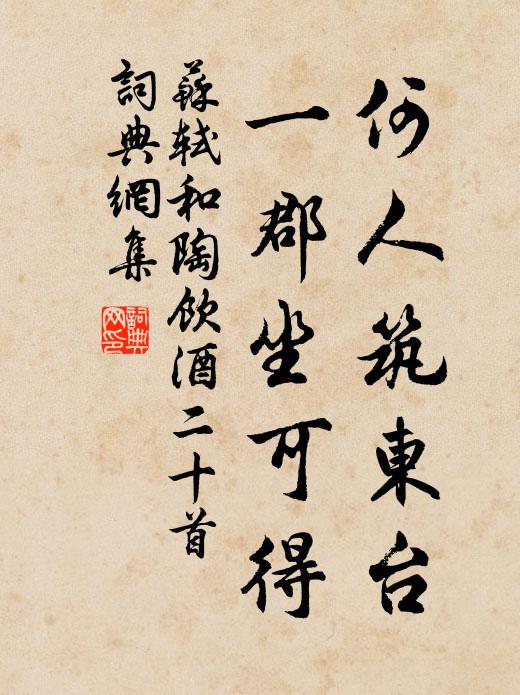 何人筑東台
一郡坐可得
蘇軾和陶飲酒二十首
詞典網集
詞典网印